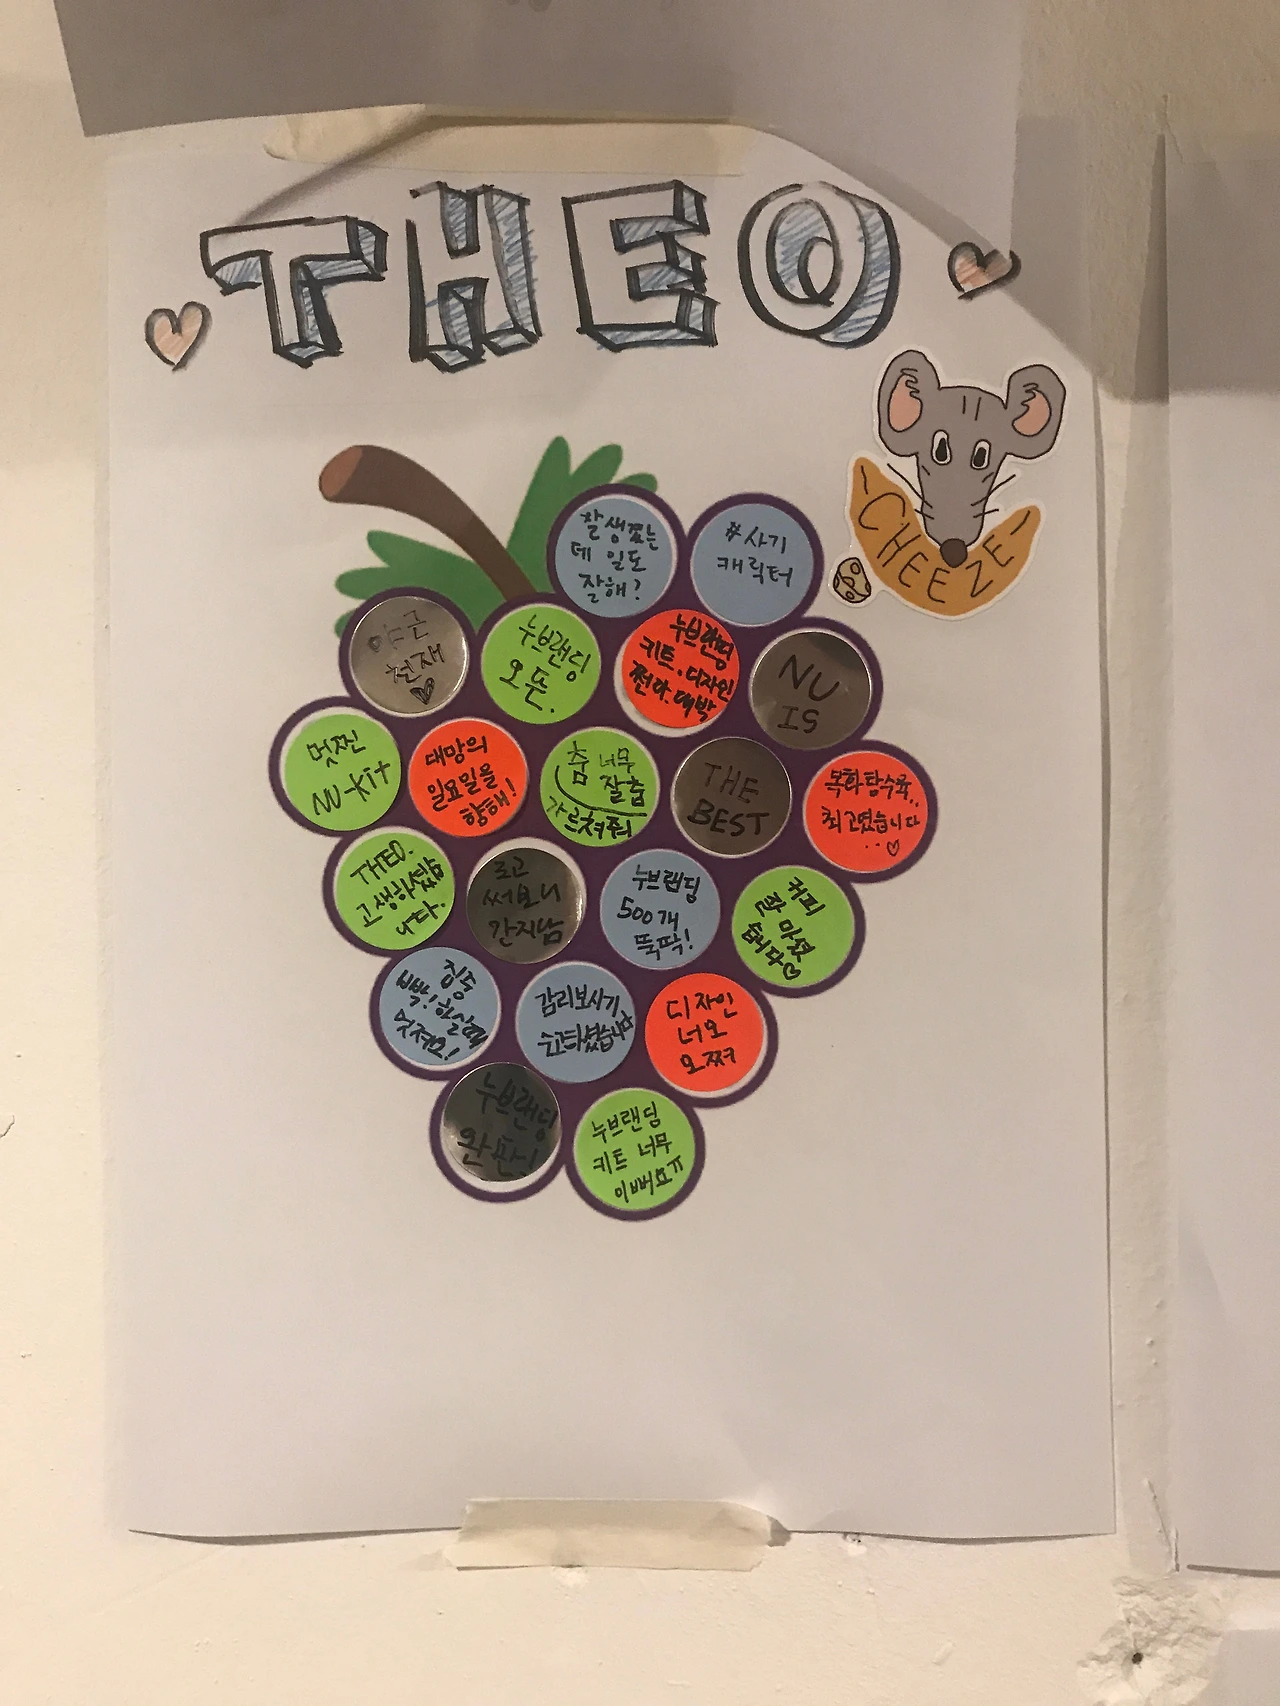 THEO
CHEEZE
잘생겼는
데 일도
잘해?
#사기
캐릭터
야근
천재♡
누브랜딩
오픈.
누브랜딩
키트.디자인
쩐다.대박
NU
IS
멋찐
NU-Kit
대망의
일요일을
향해!
춤 너무
잘춤
가르쳐줘
THE
BEST
목화탐수육..
최고였습니다
..♡
THEO.
고생하셨습
니다.
로고
써보니
간지남
누브랜딩
500개
뚝딱!
커피
잘 마셨
습니다♡
집중
빡!하실때
멋져요!
감리보시기
수고하셨습니다
디자인
너모
오쪄
누브랜딩
완판!
누브랜딩
키트 너무
이뻐요ㅠ